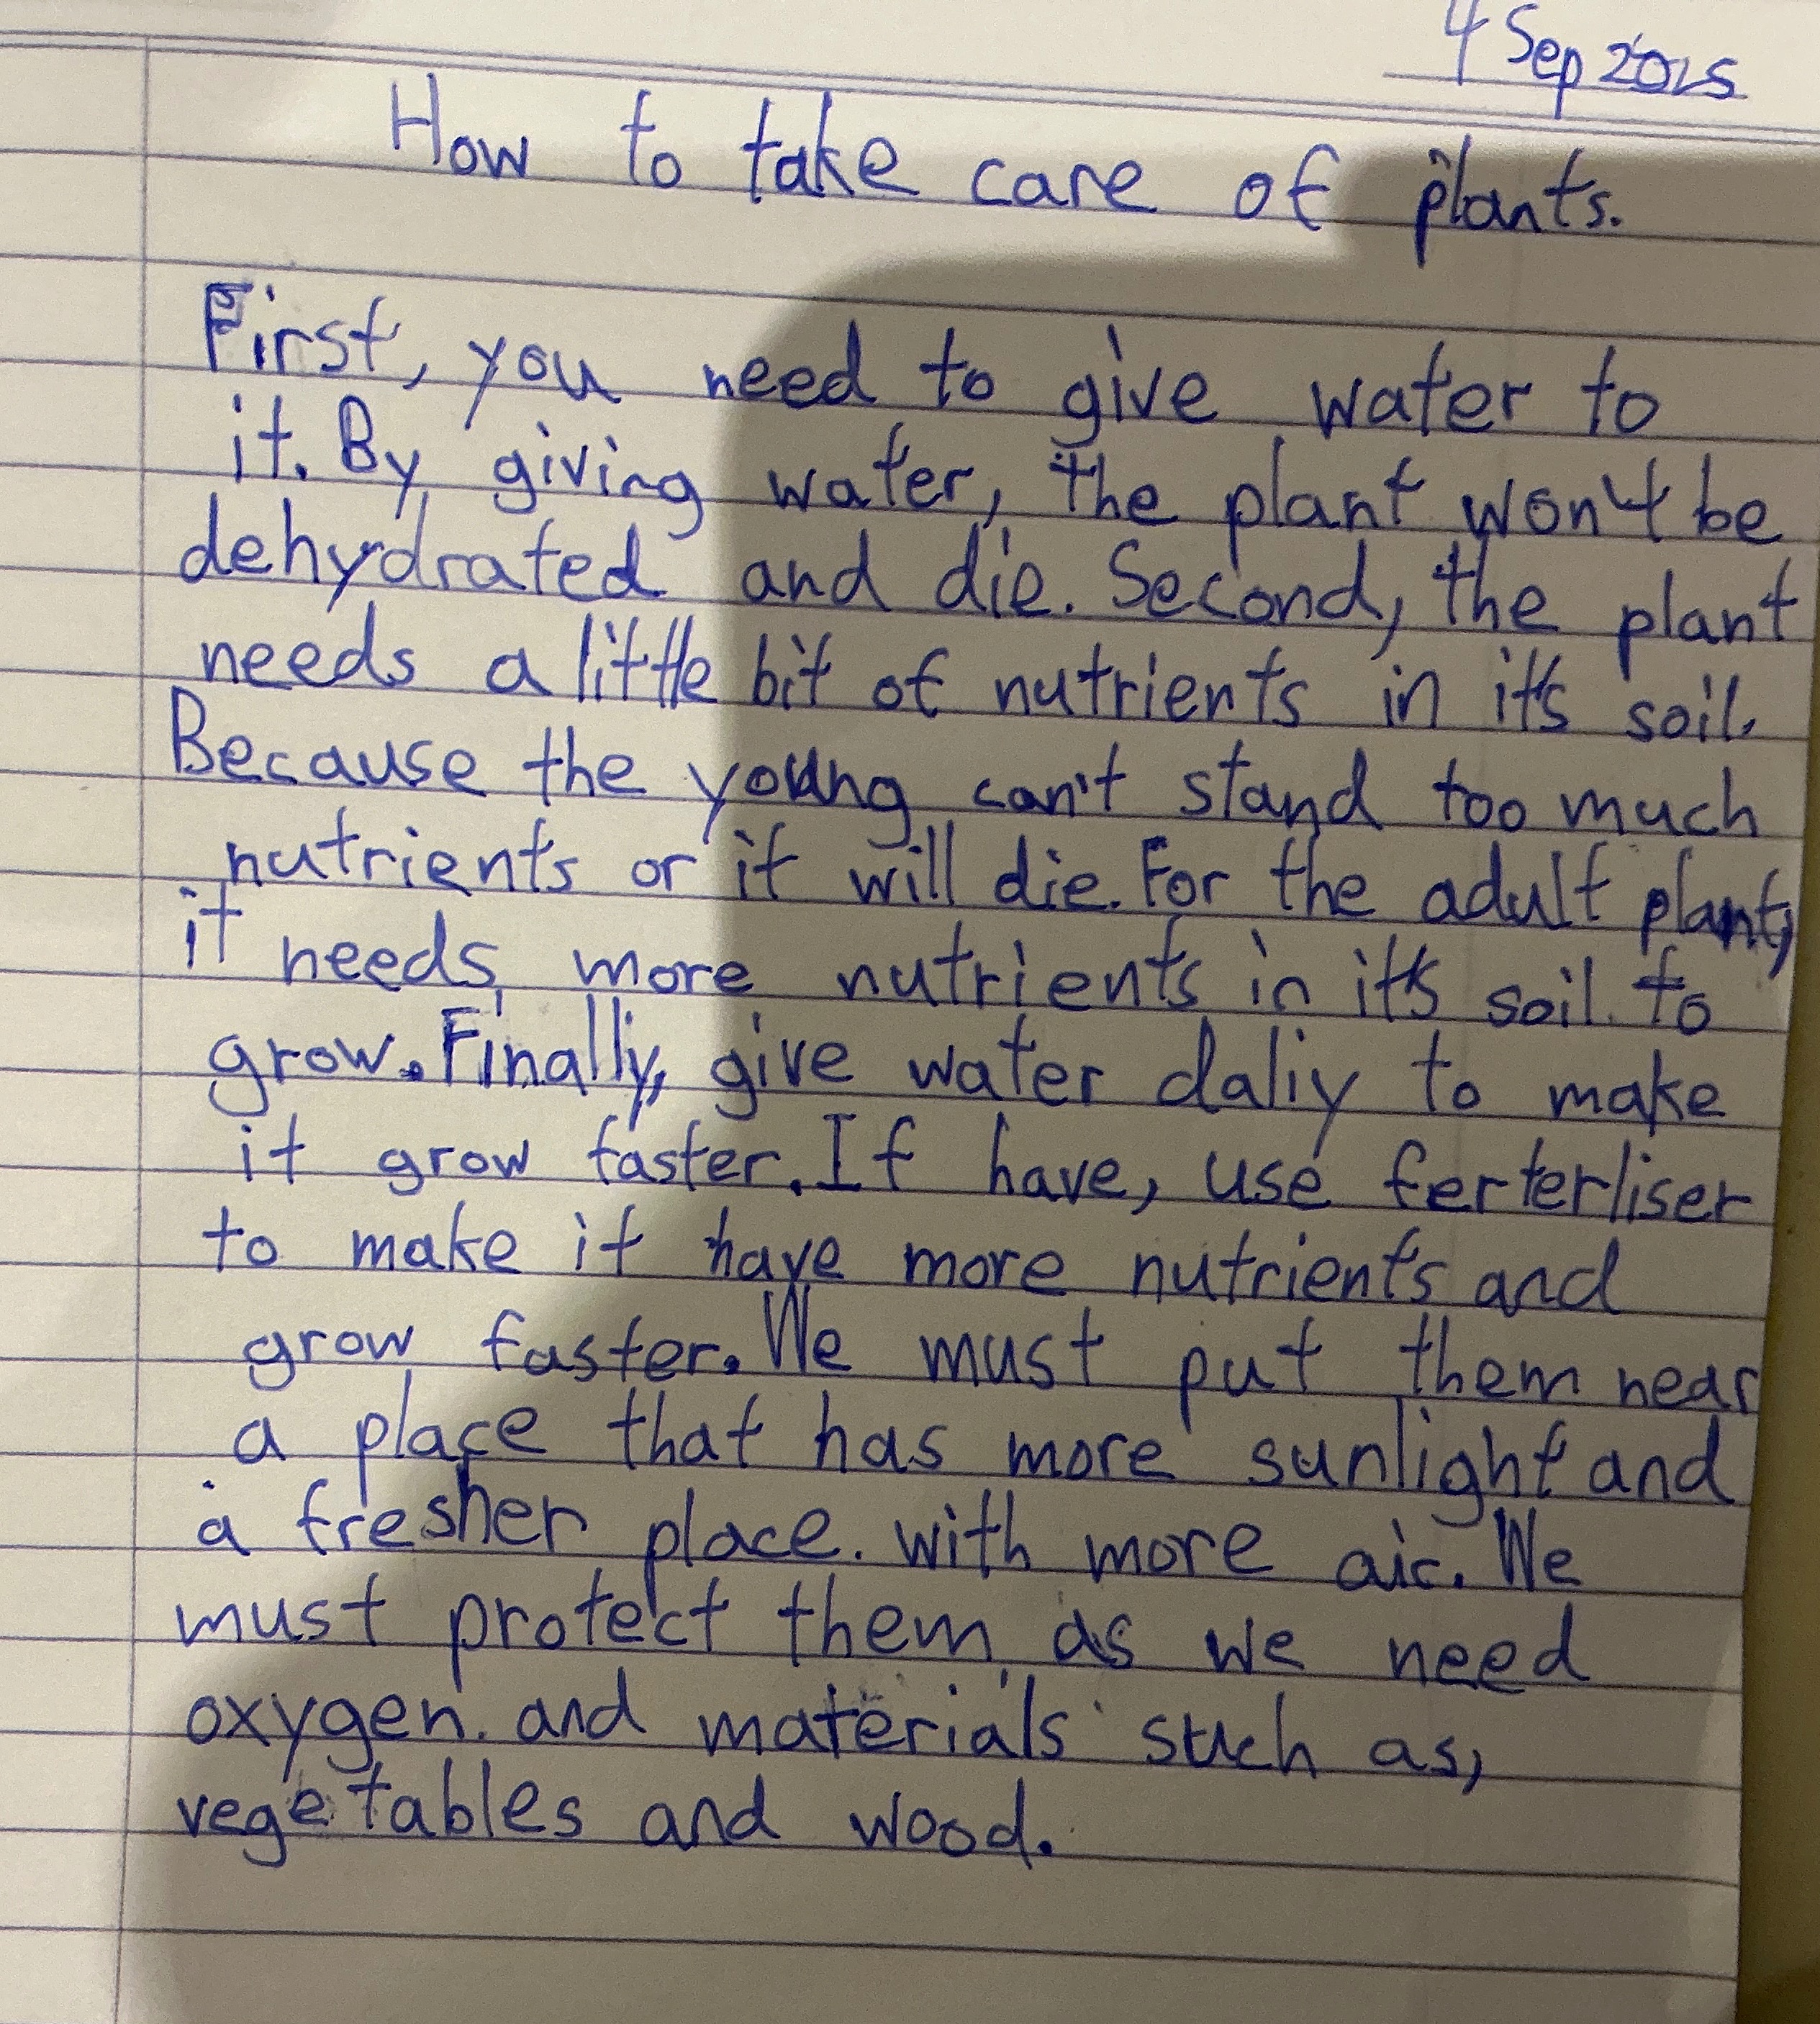 4 Sep 2025
How to take care of plants.
First, you need to give water to
it. By giving water, the plant won't be
dehydrated and die. Second, the plant
needs a little bit of nutrients in it's soil.
Because the young can't stand too much
nutrients or it will die. For the adult plant,
it needs more nutrients in it's soil to
grow. Finally, give water daliy to make
it grow faster. If have, use ferterliser
to make it have more nutrients and
grow faster. We must put them near
a place that has more sunlight and
a fresher place. with more air. We
must protect them as we need
oxygen. and materials such as,
vegetables and wood.